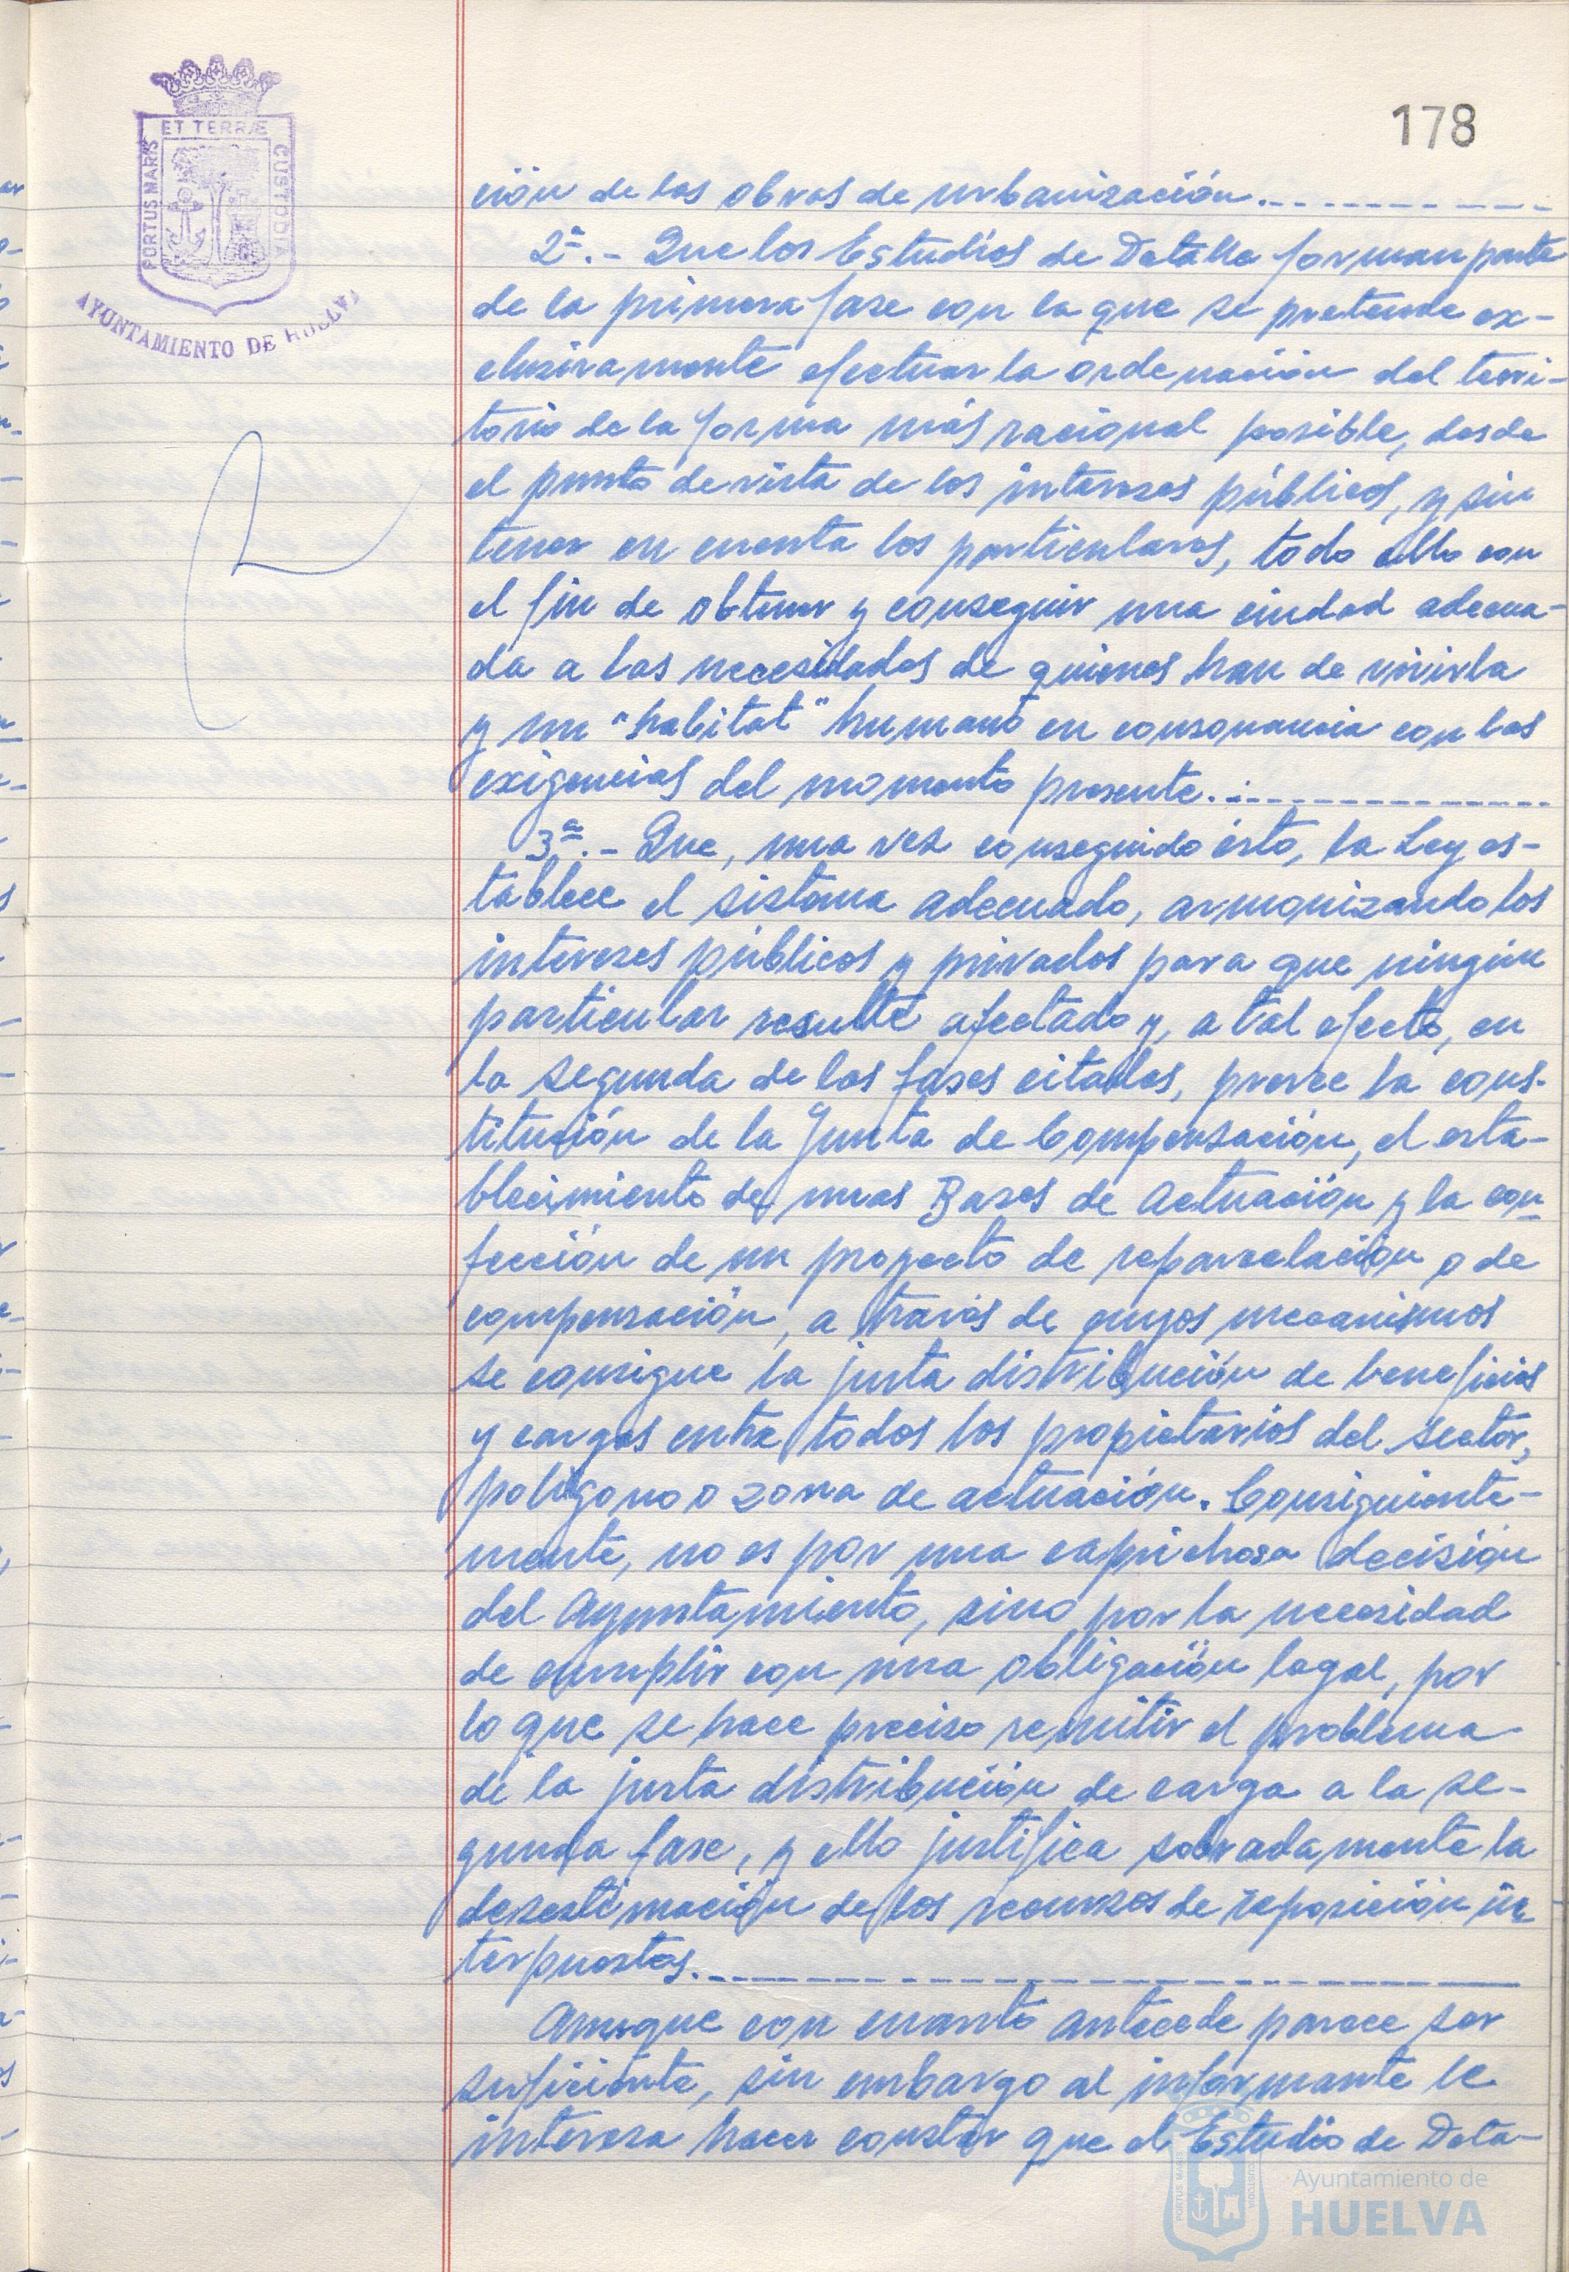 178
ET TERRÆ
PORTUS MARIS
CUSTODIA
AYUNTAMIENTO DE HUELVA
ción de las obras de urbanización.
2ª.- Que los Estudios de Detalle forman parte
de la primera fase con la que se pretende ex-
clusivamente efectuar la ordenación del terri-
torio de la forma más racional posible, desde
el punto de vista de los intereses públicos, y sin
tener en cuenta los particulares, todo ello con
el fin de obtener y conseguir una ciudad adecua-
da a las necesidades de quienes han de vivirla
y un "habitat" humano en consonancia con las
exigencias del momento presente.
3ª.- Que, una vez conseguido ésto, la Ley es-
tablece el sistema adecuado, armonizando los
intereses públicos y privados para que ningún
particular resulte afectado y, a tal efecto, en
la segunda de las fases citadas, provee la cons-
titución de la Junta de Compensación, el esta-
blecimiento de unas Bases de Actuación y la con
fección de un proyecto de reparcelación o de
compensación, a través de cuyos mecanismos
se consigue la justa distribución de beneficios
y cargas entre todos los propietarios del sector,
polígono o zona de actuación. Consiguiente-
mente, no es por una caprichosa decisión
del Ayuntamiento, sino por la necesidad
de cumplir con una obligación legal, por
lo que se hace preciso remitir el problema
de la justa distribución de carga a la se-
gunda fase, y ello justifica sobradamente la
desestimación de los recursos de reposición in
terpuestos.
Aunque con cuanto antecede parece ser
suficiente, sin embargo al informante le
interesa hacer constar que el Estudio de Deta-
Ayuntamiento de
HUELVA